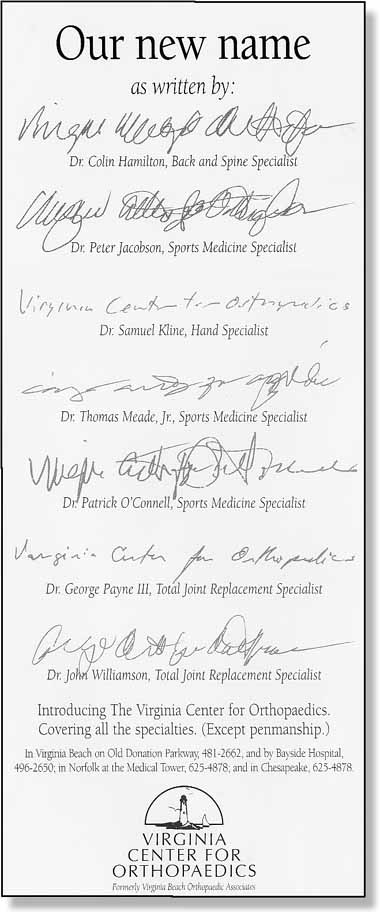 Our new name
as written by:
Dr. Colin Hamilton, Back and Spine Specialist
Dr. Peter Jacobson, Sports Medicine Specialist
Virginia Center for Orthopaedics
Dr. Samuel Kline, Hand Specialist
Dr. Thomas Meade, Jr., Sports Medicine Specialist
Dr. Patrick O'Connell, Sports Medicine Specialist
Virginia Center for Orthopaedics
Dr. George Payne III, Total Joint Replacement Specialist
Dr. John Williamson, Total Joint Replacement Specialist
Introducing The Virginia Center for Orthopaedics.
Covering all the specialties. (Except penmanship.)
In Virginia Beach on Old Donation Parkway, 481-2662, and by Bayside Hospital,
496-2650; in Norfolk at the Medical Tower, 625-4878; and in Chesapeake, 625-4878.
VIRGINIA
CENTER FOR
ORTHOPAEDICS
Formerly Virginia Beach Orthopaedic Associates